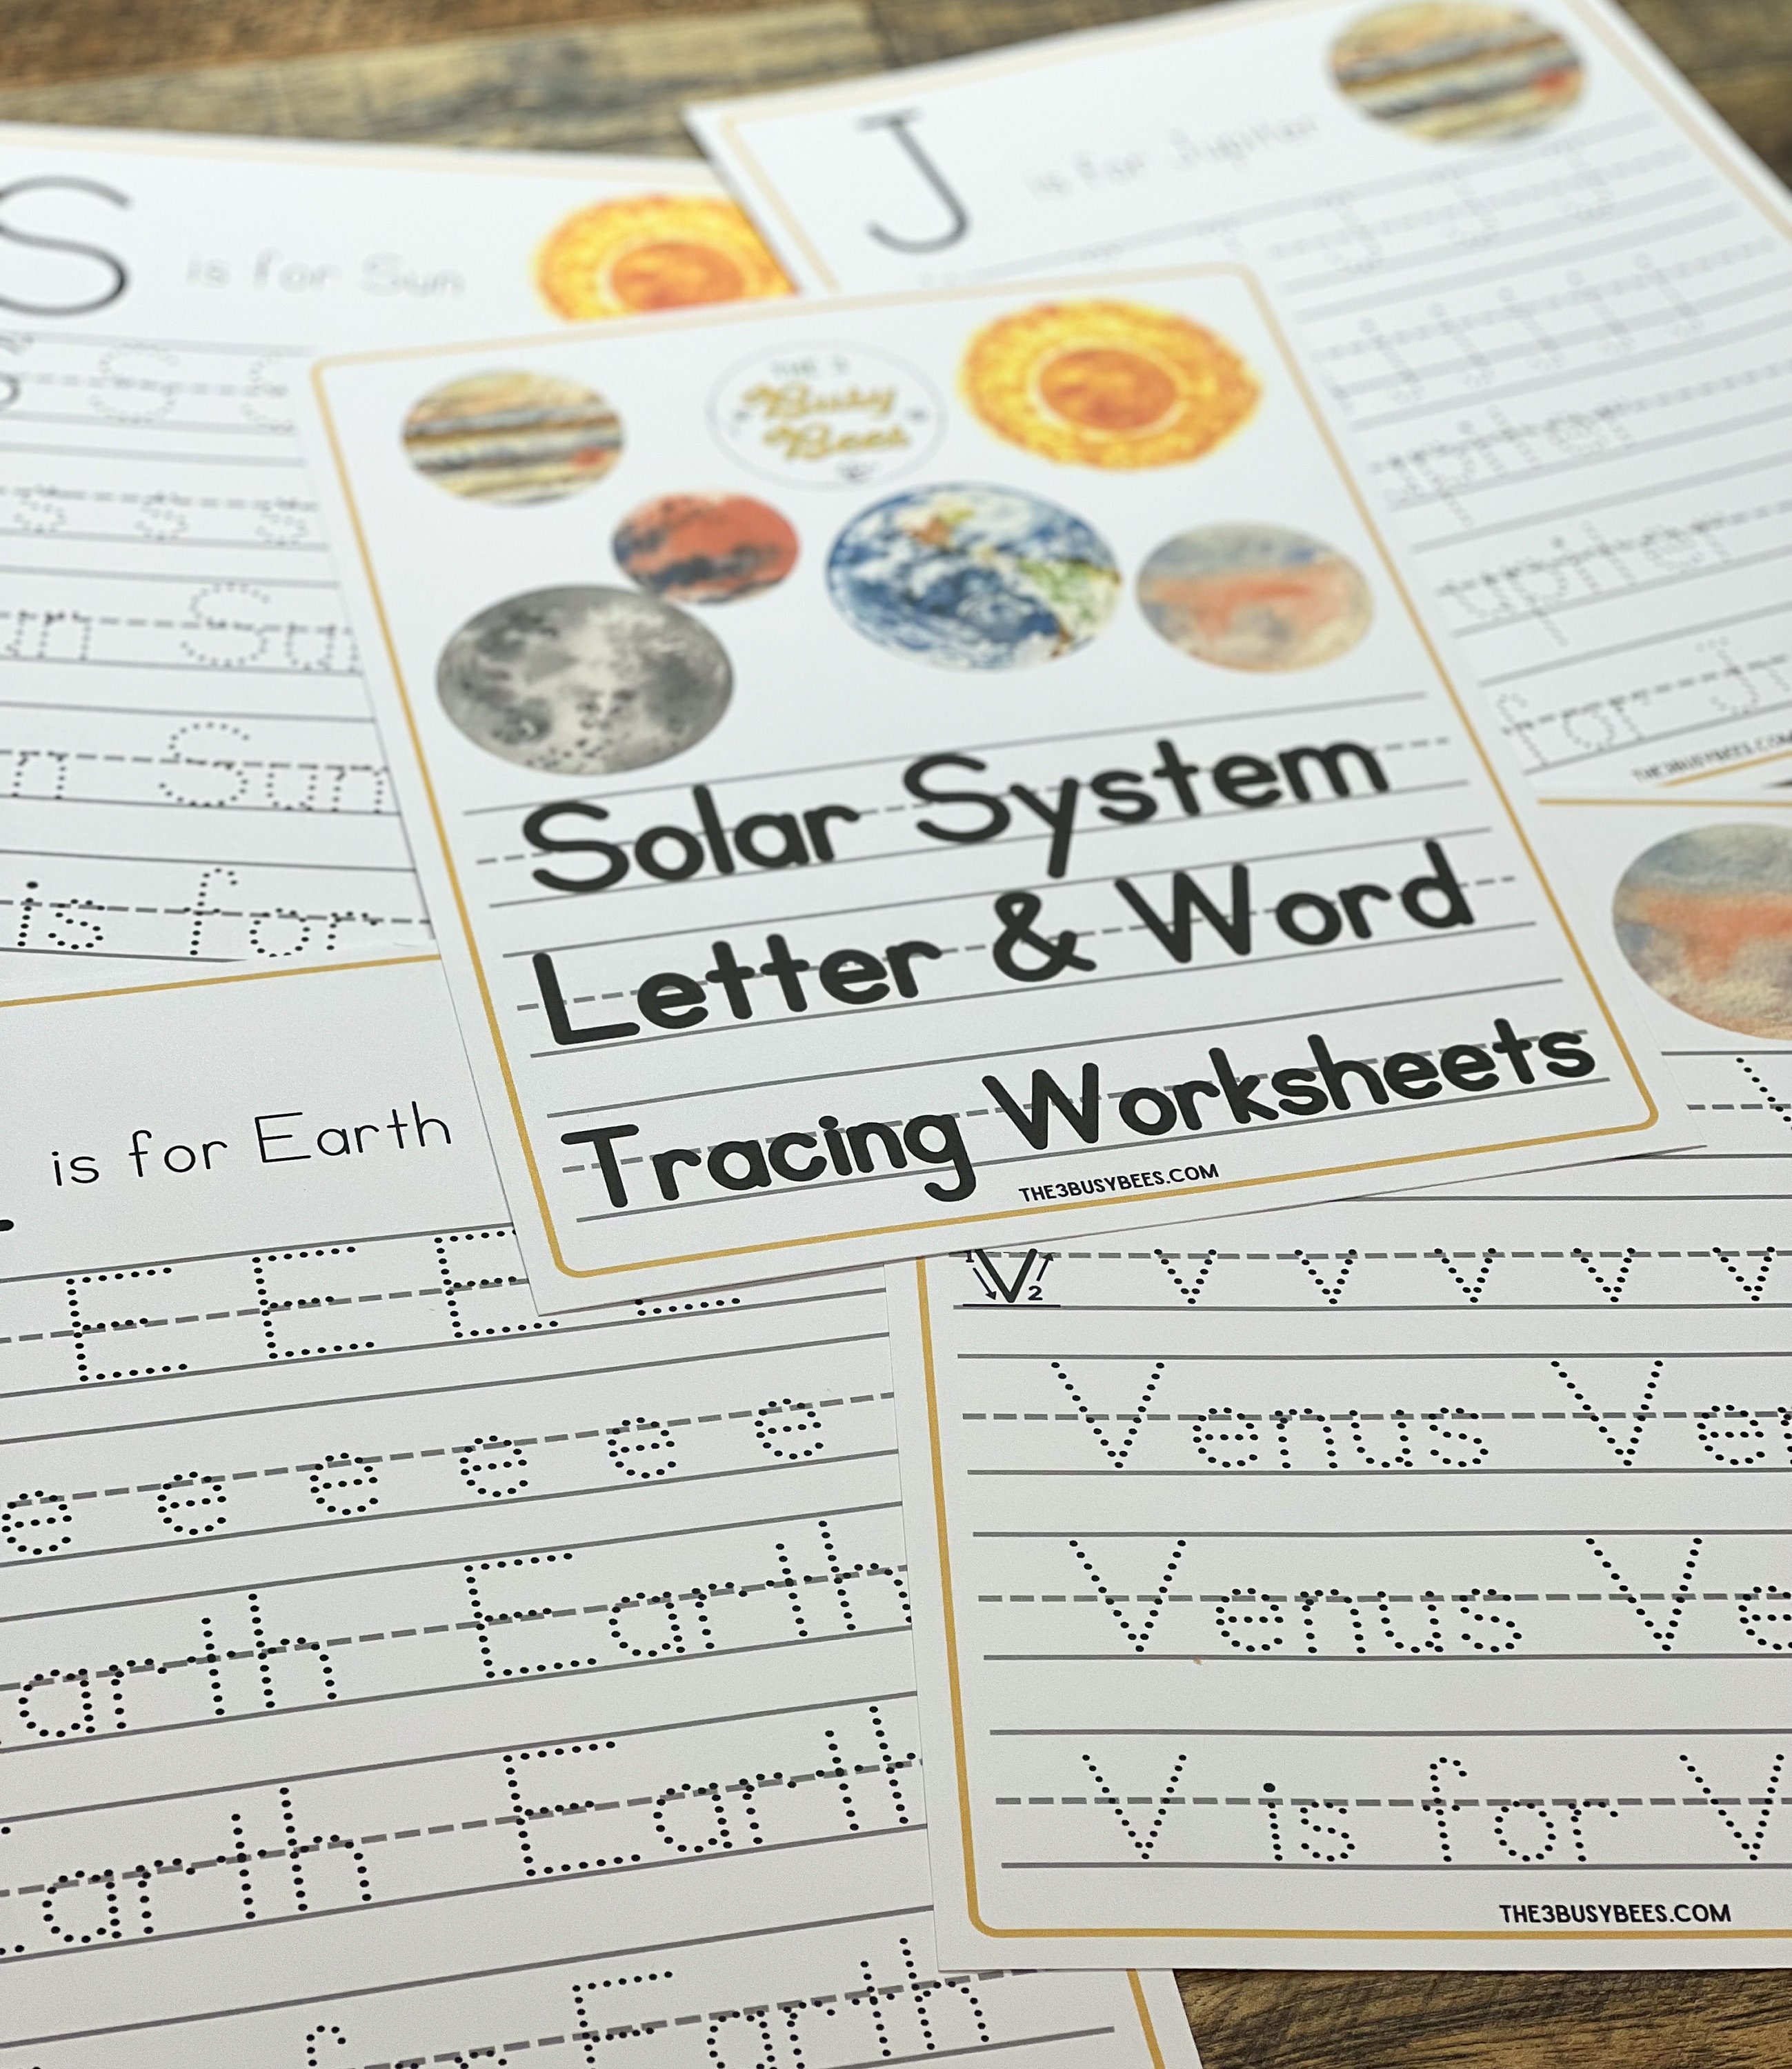 J is for Jupiter
S is for Sun
S s
s s s
un Su
n Sun
is for
upiter
for Ju
THE3BUSYBEES.COM
THE 3
Busy
Bees
Solar System
Letter & Word
Tracing Worksheets
THE3BUSYBEES.COM
is for Earth
E E E
e e e e e e
arth Earth
Earth Earth
for Earth
1 V 2 v v v v v
Venus Ve
Venus Ve
V is for V
THE3BUSYBEES.COM